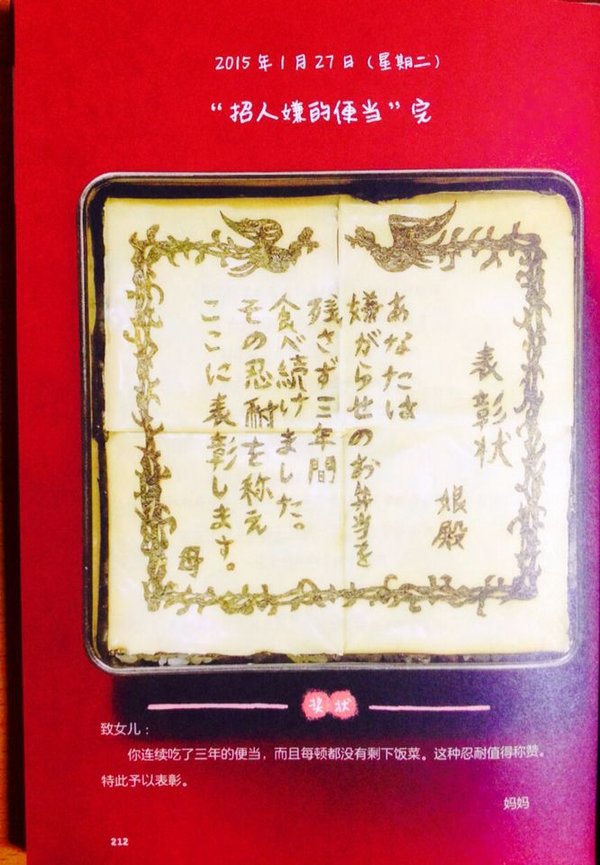 2015年1月27日（星期二）
“招人嫌的便当”完
表彰状
娘殿
あなたは
嫌がらせのお弁当を
残さず三年間
食べ続けました。
その忍耐を称え
ここに表彰します。
母
奖状
致女儿：
你连续吃了三年的便当，而且每顿都没有剩下饭菜。这种忍耐值得称赞。
特此予以表彰。
妈妈
212